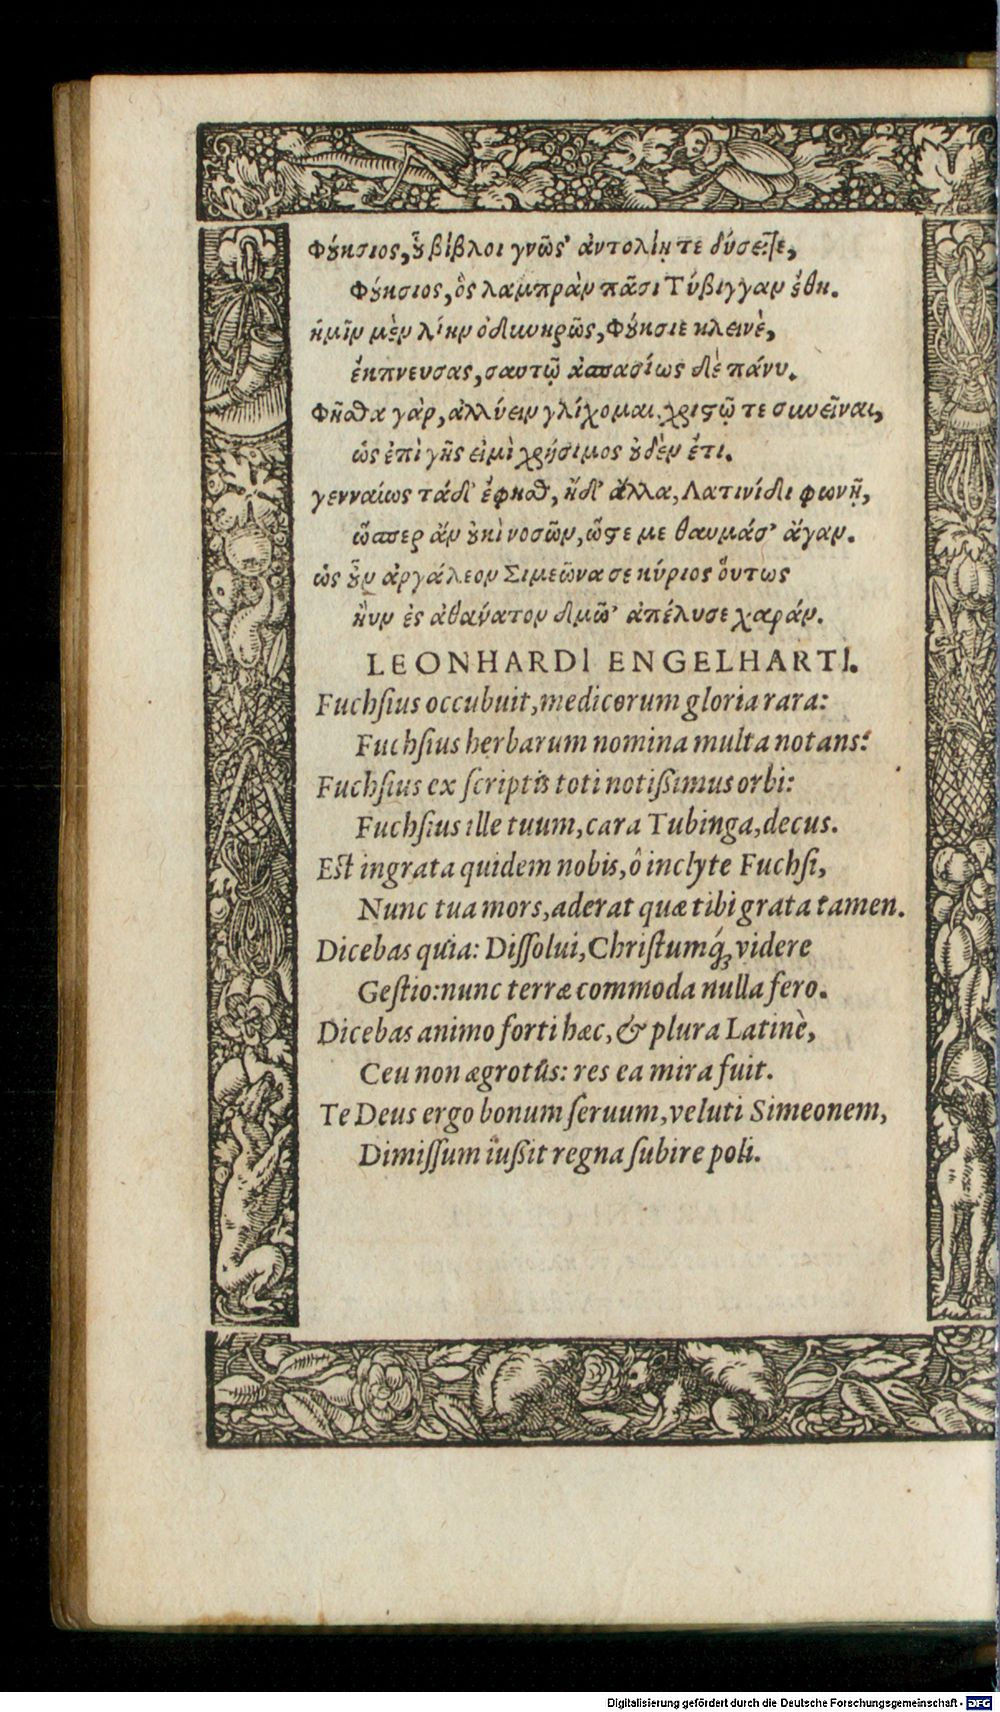 Φούκσιος, οὗ βίβλοι γνῶσ' ἀντολίη τε δύσις τε,
Φούκσιος, ὃς λαμπρὰν πᾶσι Τύβιγγαν ἔθη.
ἡμῖν μὲν λίην ὀδυνηρῶς, Φούκσιε κλεινὲ,
ἔκπνευσας, σαυτῷ ἀσπασίως δὲ πάνυ.
Φῆσθα γὰρ, ἀλλύειν γλίχομαι χριστῷ τε συνεῖναι,
ὡς ἐπὶ γῆς εἰμὶ χρήσιμος οὐδὲν ἔτι.
γενναίως τάδ' ἔφησθ', ἠδ' ἄλλα, Λατινίδι φωνῇ,
ὥσπερ ἂν οὐκὶ νοσῶν, ὥστε με θαυμάσ' ἄγαν.
ὡς οὖν ἀργάλεον Σιμεῶνα σε κύριος οὕτως
νῦν ἐς ἀθανάτου δμῶ' ἀπέλυσε χαράν.
LEONHARDI ENGELHARTI.
Fuchſius occubuit, medicorum gloria rara:
Fuchſius herbarum nomina multa notans:
Fuchſius ex ſcriptis toti notiſsimus orbi:
Fuchſius ille tuum, cara Tubinga, decus.
Eſt ingrata quidem nobis, ô inclyte Fuchſi,
Nunc tua mors, aderat quæ tibi grata tamen.
Dicebas quia: Diſſolui, Chriſtumq́ꝫ videre
Geſtio: nunc terræ commoda nulla fero.
Dicebas animo forti hæc, & plura Latinè,
Ceu non ægrotus: res ea mira fuit.
Te Deus ergo bonum ſeruum, veluti Simeonem,
Dimiſſum iuſsit regna ſubire poli.
Digitalisierung gefördert durch die Deutsche Forschungsgemeinschaft - DFG